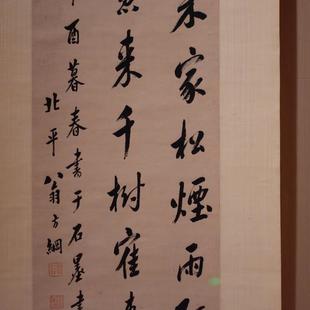 家松煙雨
來千樹
酉暮春書于石墨書
北平翁方綱